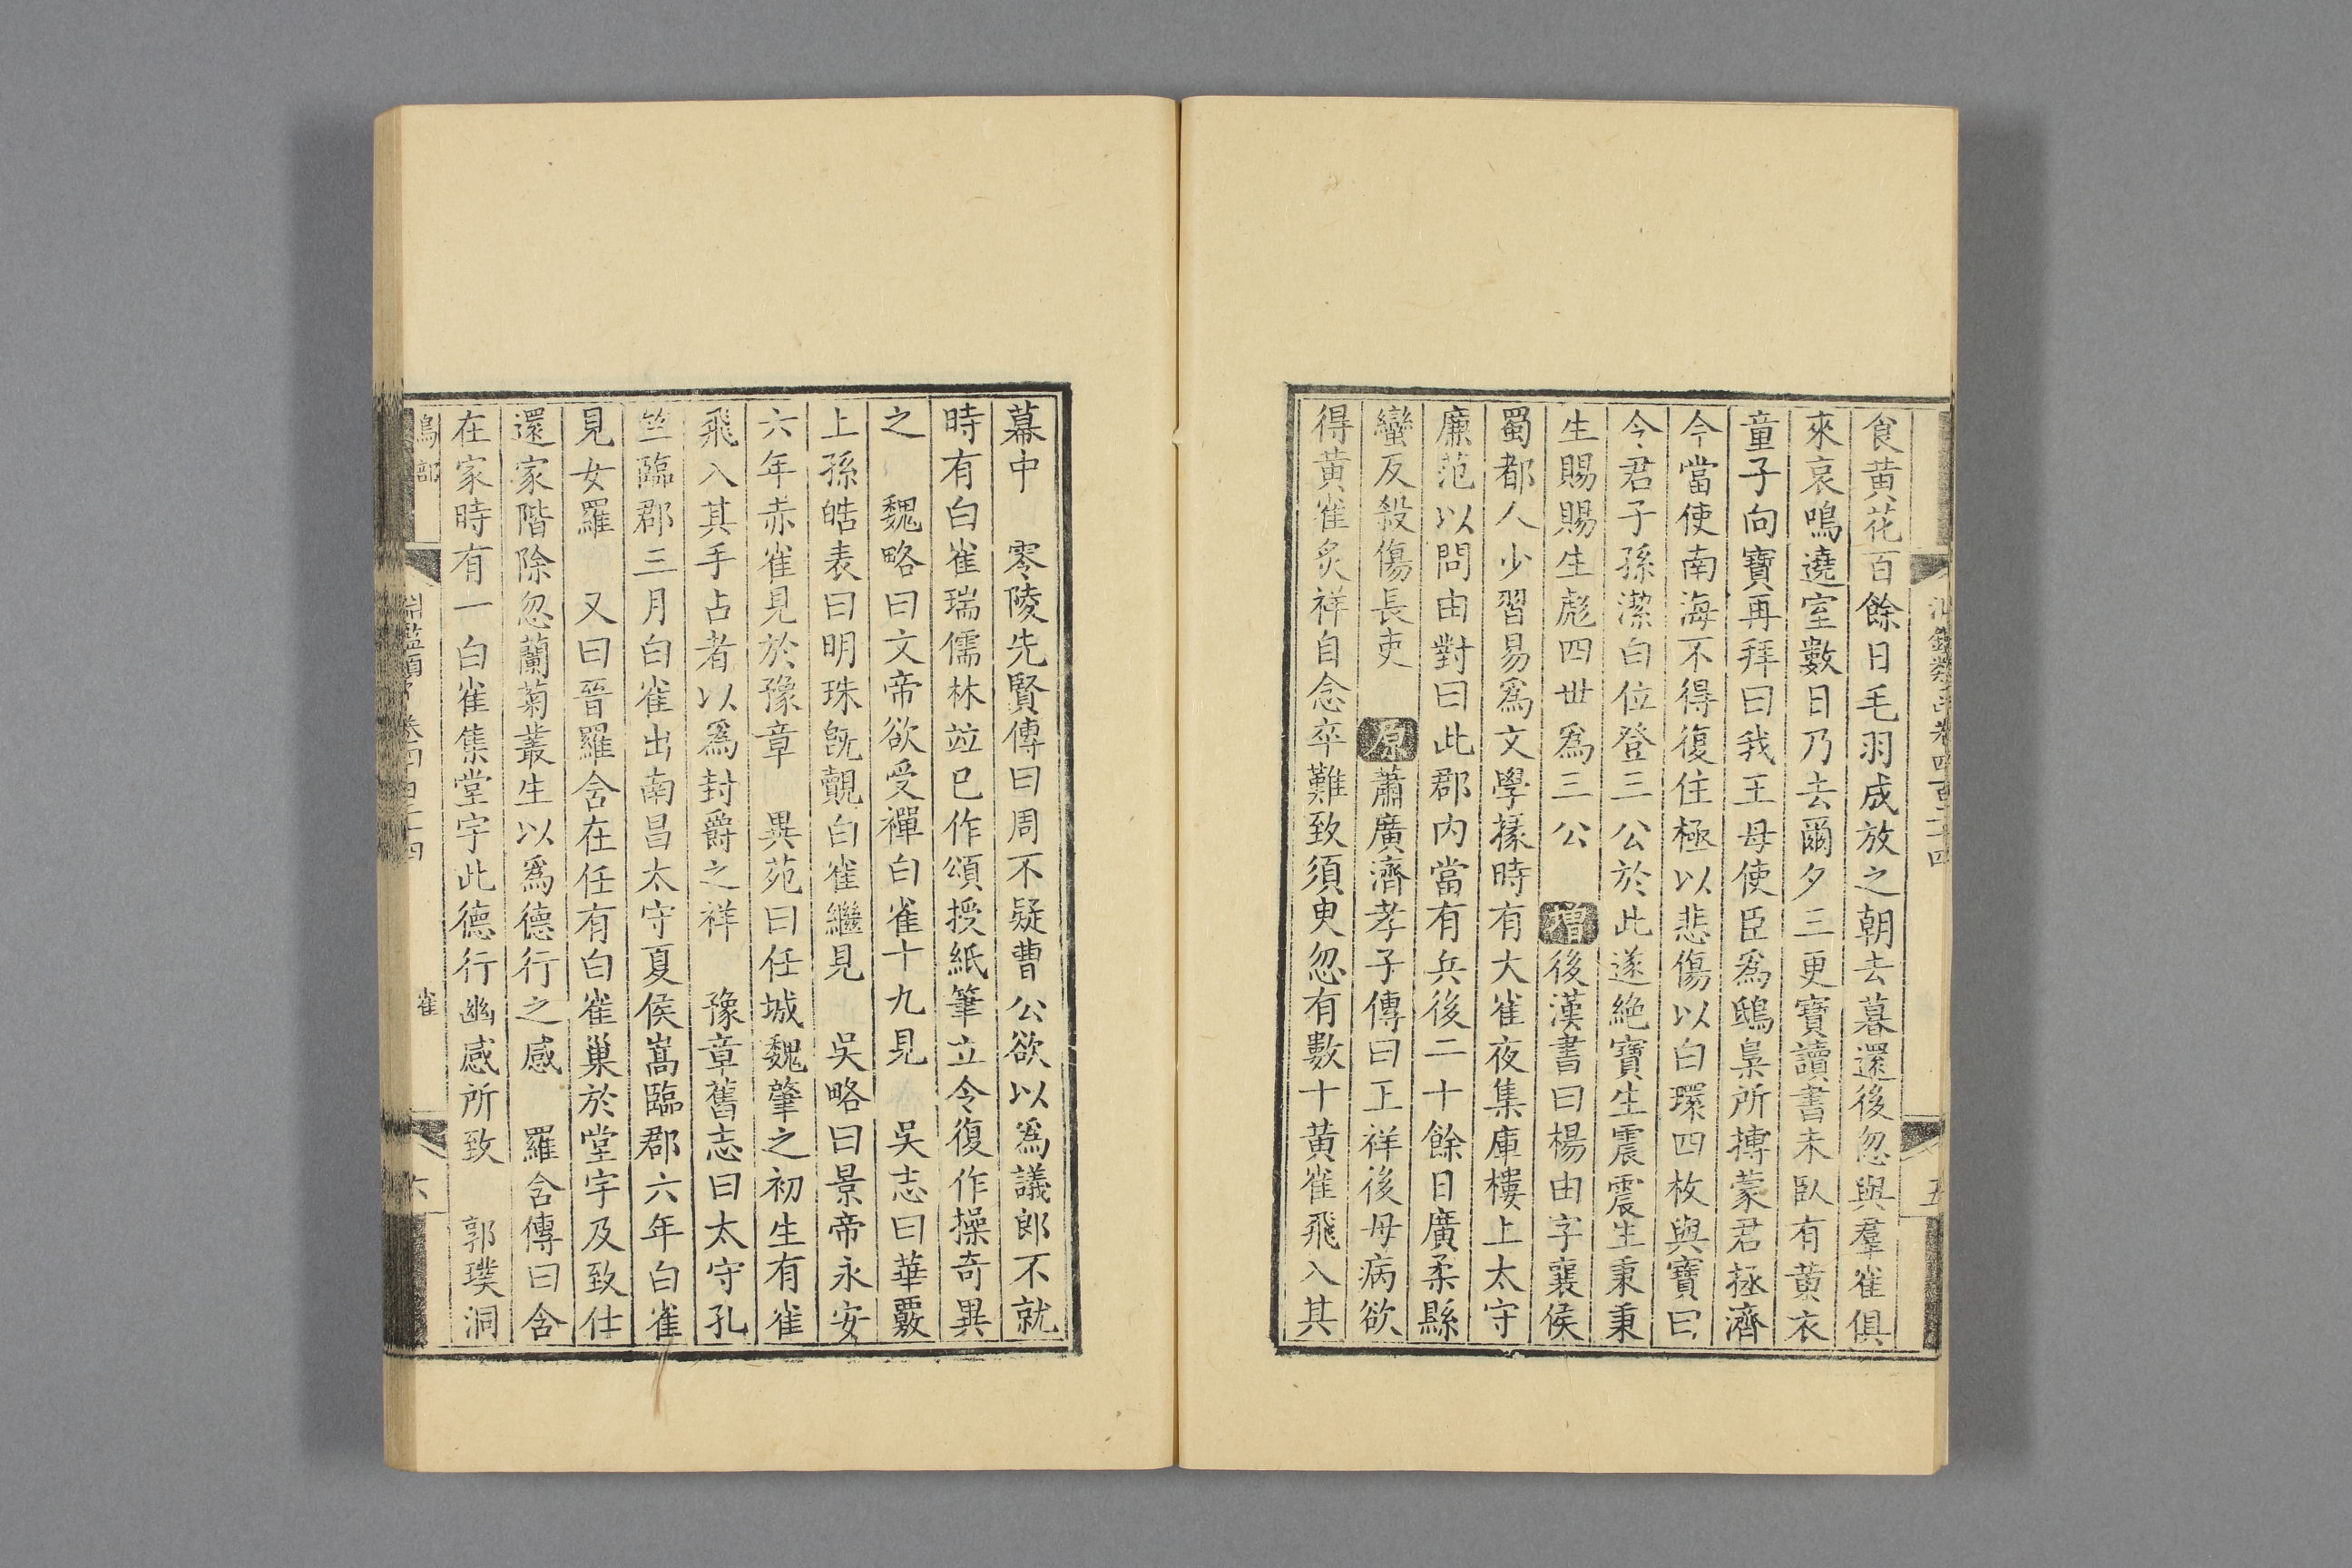 食黄花百餘日毛羽成放之朝去暮還後忽與羣雀俱
來哀鳴遶室數日乃去爾夕三更寶讀書未臥有黄衣
童子向寶再拜曰我王母使臣爲鴟梟所摶蒙君拯濟
今當使南海不得復住極以悲傷以白環四枚與寶曰
令君子孫潔白位登三公於此遂絶寶生震震生秉秉
生賜賜生彪四世爲三公　增後漢書曰楊由字襄侯
蜀都人少習易爲文學掾時有大雀夜集庫樓上太守
廉范以問由對曰此郡内當有兵後二十餘日廣柔縣
蠻反殺傷長吏　原蕭廣濟孝子傳曰王祥後母病欲
得黄雀炙祥自念卒難致須臾忽有數十黄雀飛入其
五
幕中　零陵先賢傳曰周不疑曹公欲以爲議郎不就
時有白雀瑞儒林竝已作頌授紙筆立令復作操奇異
之　魏略曰文帝欲受禪白雀十九見　吳志曰華覈
上孫皓表曰明珠旣覿白雀繼見　吳略曰景帝永安
六年赤雀見於豫章　異苑曰任城魏肇之初生有雀
飛入其手占者以爲封爵之祥　豫章舊志曰太守孔
竺臨郡三月白雀出南昌太守夏侯嵩臨郡六年白雀
見女羅　又曰晉羅含在任有白雀巢於堂宇及致仕
還家階除忽蘭菊叢生以爲德行之感　羅含傳曰含
在家時有一白雀集堂宇此德行幽感所致　郭璞洞
鳥部
雀
六